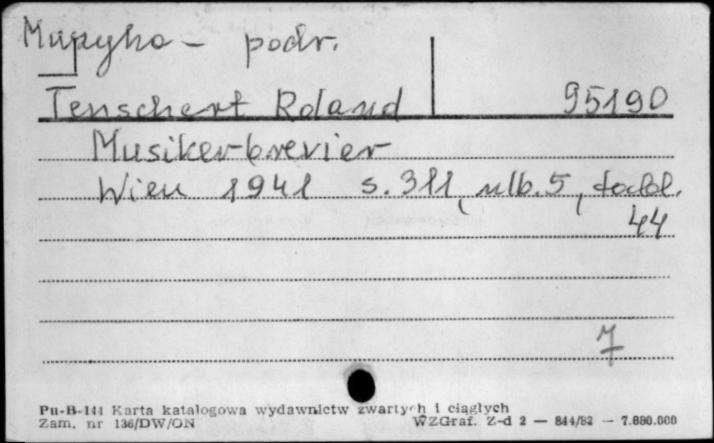 Muzyka - podr.
Tenschert Roland 95190
Musikerbrevier
Wien 1941 s. 311, nlb. 5, tabl.
44
7
Pu-B-144 Karta katalogowa wydawnictw zwartych i ciągłych
Zam. nr 136/DW/ON WZGraf. Z-d 2 — 844/82 — 7.880.000